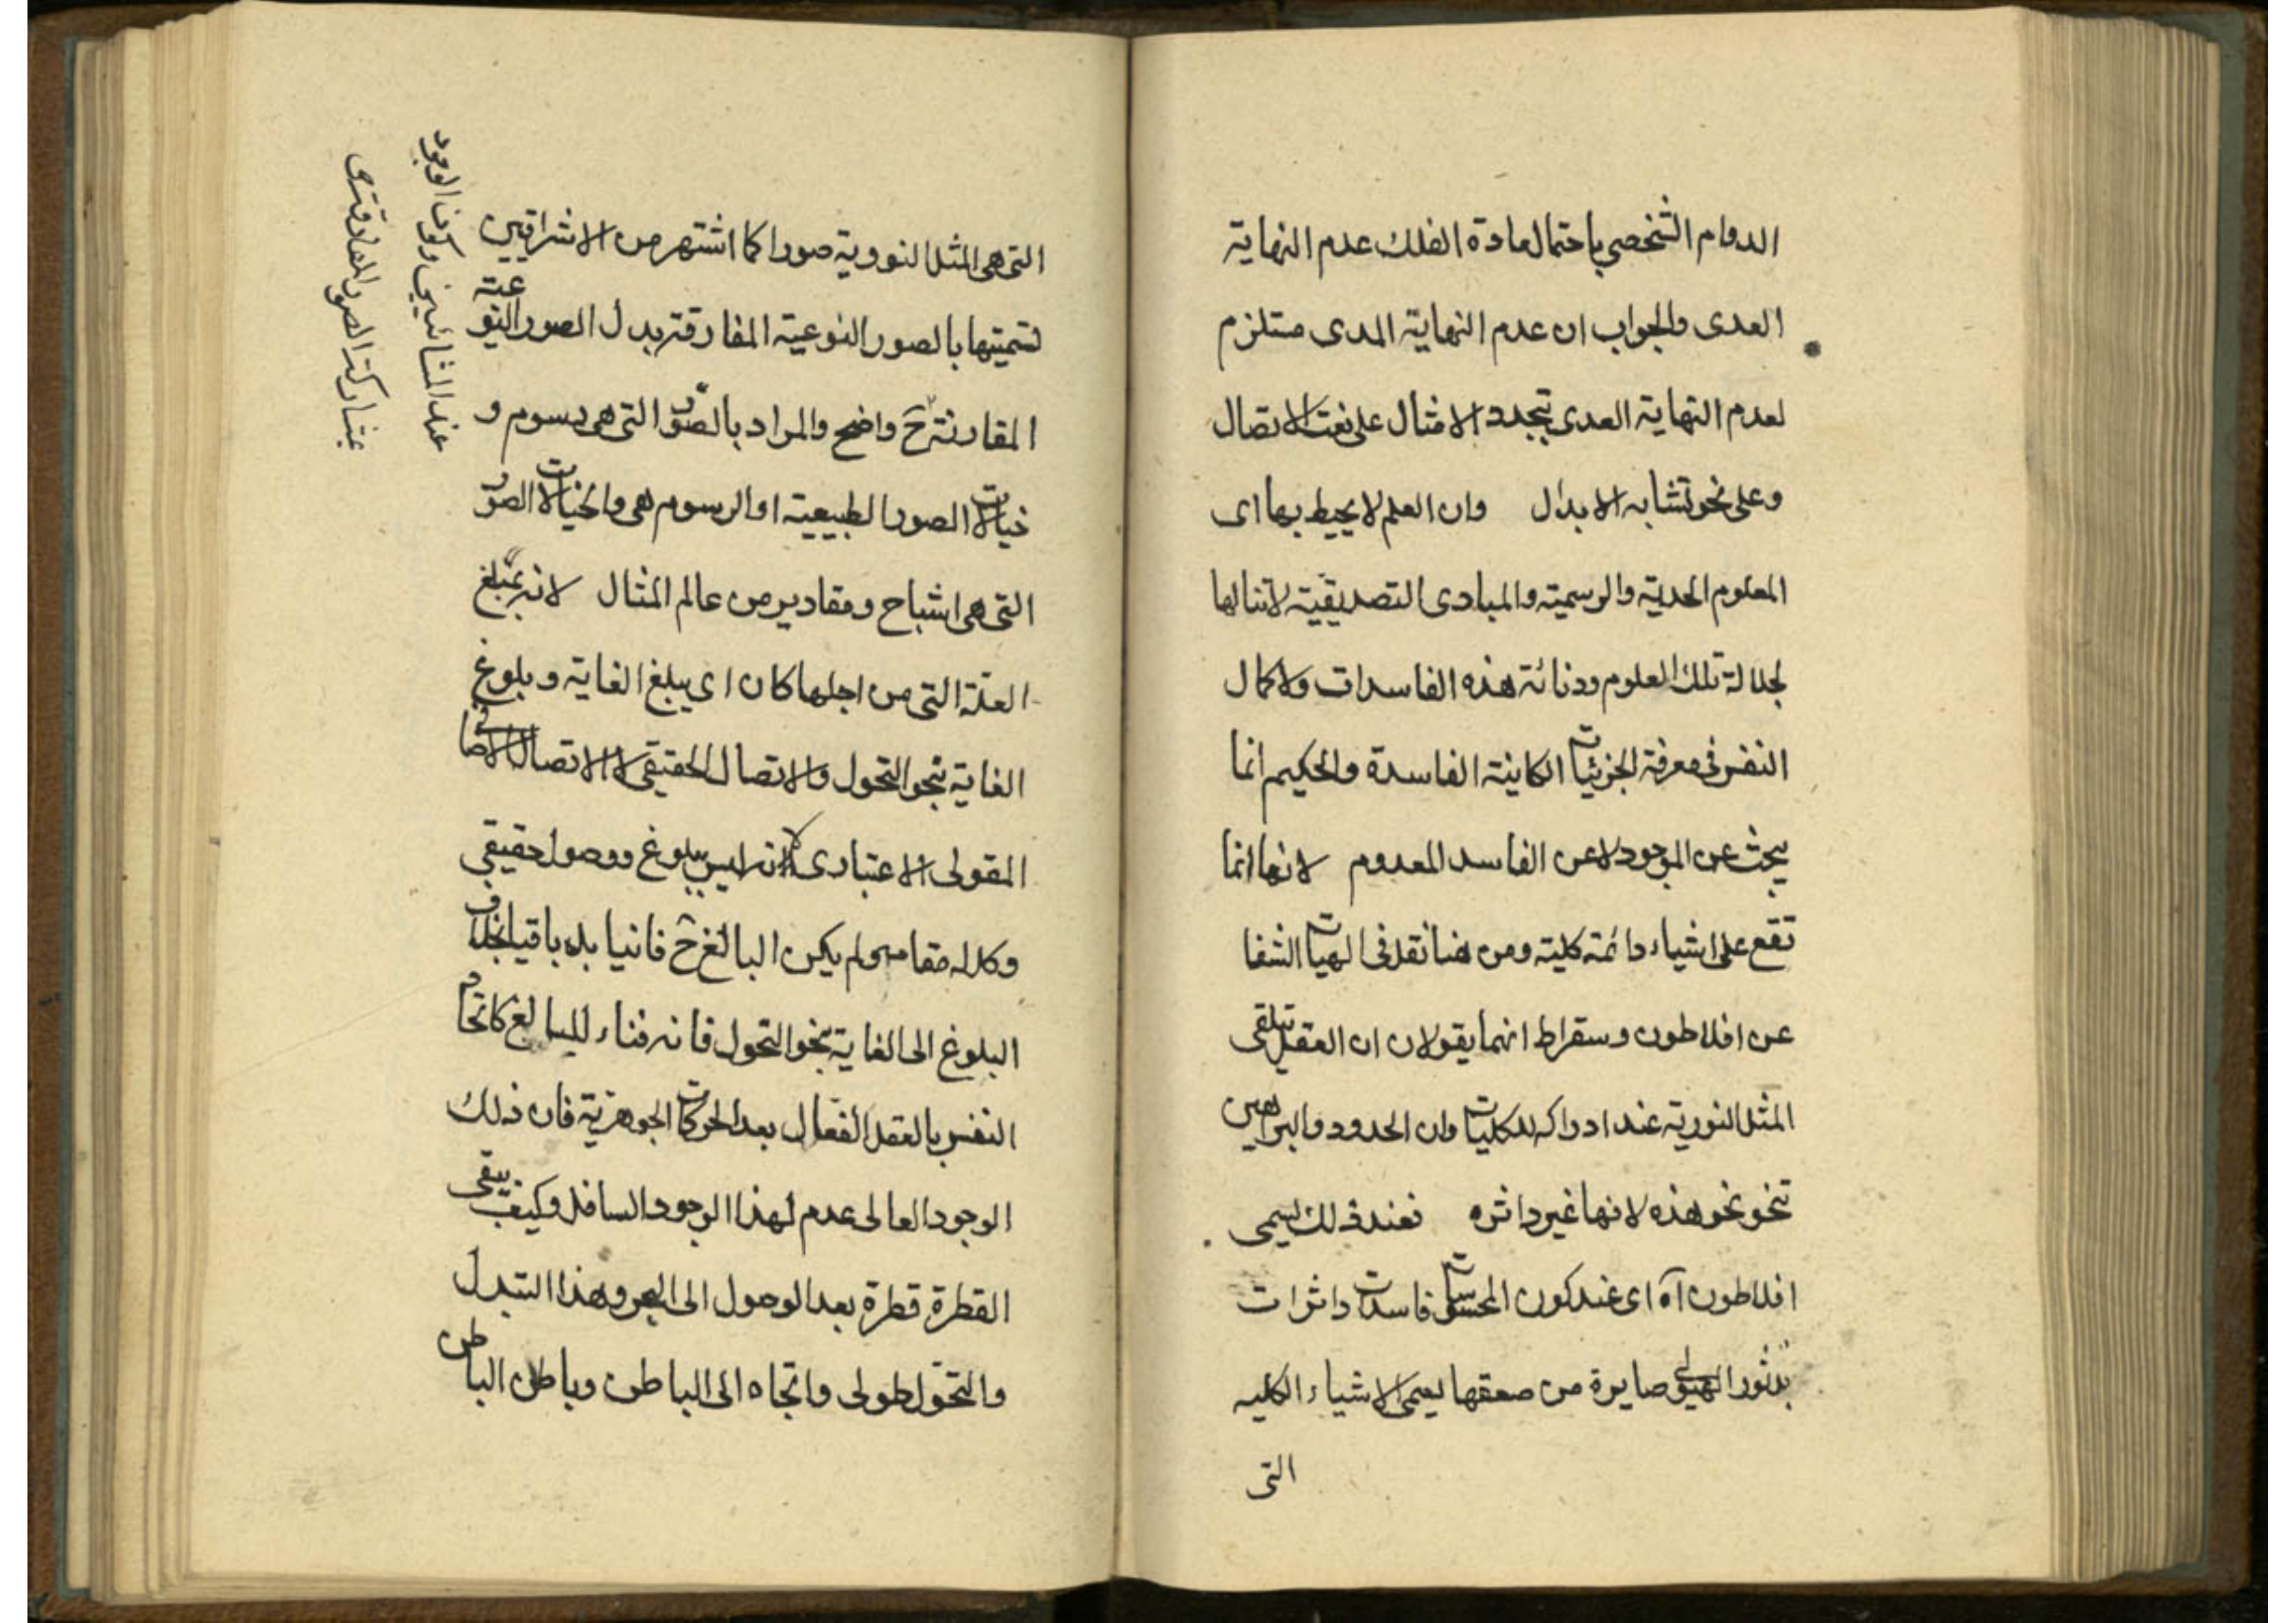 الدوام الشخصي باحتمال مادة الفلك عدم النهاية
العدى والجواب ان عدم النهاية المدى مستلزم
لعدم النهاية العدى بتجدد الامثال على نعت الاتصال
وعلى نحو تشابه الابدال وان العلم لا يحيط بها اى
المعلوم الحدية والرسمية والمبادى التصديقية لا تنالها
لجلالة تلك العلوم ودنائة هذه الفاسدات ولا كمال
النفس فى معرفة الجزئيات الكاينة الفاسدة والحكيم انما
يبحث عن الموجود لا عن الفاسد المعدوم لانها انما
تقع على اشياء دائمة كلية ومن هنا نقل فى الهيات الشفا
عن افلاطون وسقراط انهما يقولان ان العقل تتلقى
المثل النورية عند ادراكه للكليات وان الحدود والبراهين
تنحو نحو هذه لانها غير داثره فعند ذلك يسمى
افلاطون آه اى عند كون المحسوسات فاسدات داثرات
بدثور الهيولى صايرة من صعقها يعنى الاشياء الكليه
التى
التى هى المثل النورية صورا كما اشتهر من الاشراقيين
تسميتها بالصور النوعية المفارقة بدل الصور النوعية
المقارنة ح واضح والمراد بالصور التى هى رسوم و
خيالات الصور الطبيعية او الرسوم هى والخيالات الصور
التى هى اشباح ومقادير من عالم المثال لانه يبلغ
العلة التى من اجلها كان اى يبلغ الغاية وبلوغ
الغاية بنحو التحول والاتصال الحقيقى لا الاتصال الاضافى
المقولى الاعتبارى لانه ليس ببلوغ ووصول حقيقى
وكل له مقام ولم يكن البالغ ح فانيا بل باقيا بخلاف
البلوغ الى الغاية بنحو التحول فانه فناء للبالغ كاتحاد
النفس بالعقل الفعال بعد الحركات الجوهرية فان ذلك
الوجود العالى عدم لهذا الوجود السافل وكيف يبقى
القطرة قطرة بعد الوصول الى البحر وهذا التبدل
والتحول طولى واتجاه الى الباطن وباطن الباطن
عند المشائين وكون الوجود
بمشاركة الصور المفارقة